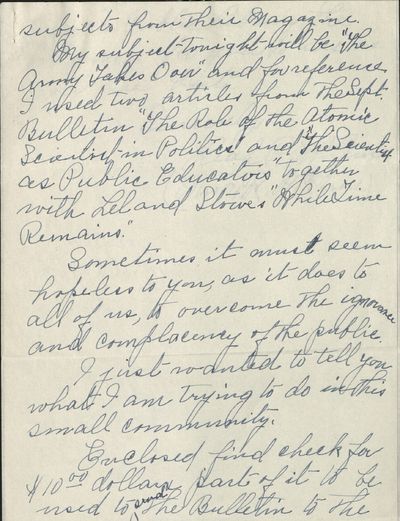 subjects from their Magazine.
My subject tonight will be "The
Army Takes Over" and for reference
I used two articles from the Sept.
Bulletin "The Role of the Atomic
Scientist in Politics" and "The Scientist
as Public Educators" together
with Leland Stowe's "While Time
Remains."
Sometimes it must seem
hopeless to you, as it does to
all of us, to overcome the ignorance
and complacency of the public.
I just wanted to tell you
what I am trying to do in this
small community.
Enclosed find check for
$10.00 dollars part of it to be
used to send the Bulletin to the